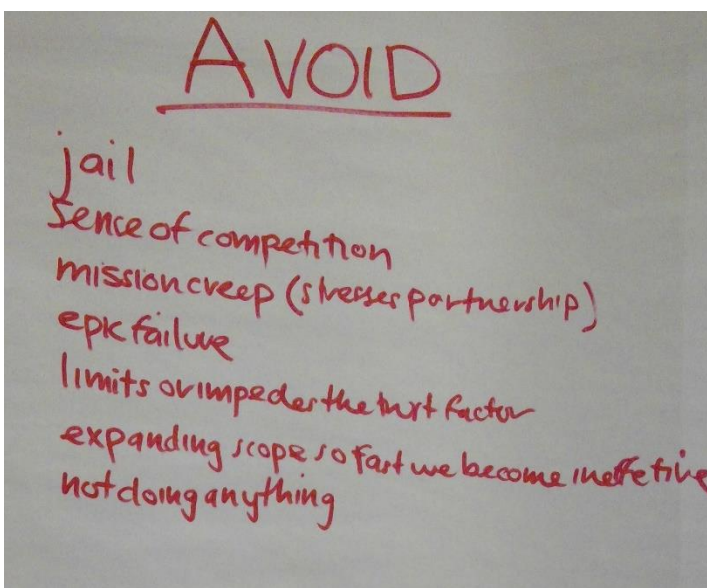 AVOID
jail
sence of competition
mission creep (stresses partnership)
epic failure
limits or impedes the trust factor
expanding scope so fast we become ineffetive
not doing anything